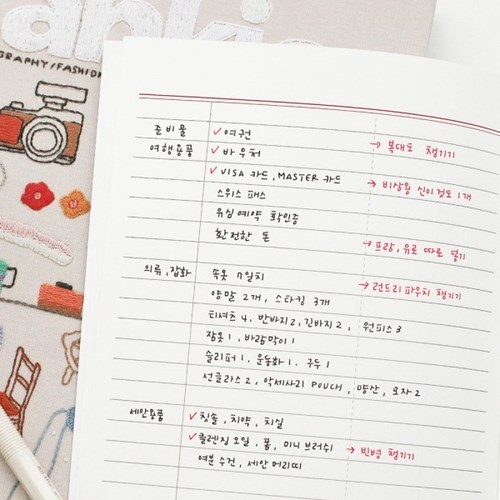 GRAPHY/FASHION
준비물 ✓ 여권 → 복대도 챙기기
여행용품 ✓ 바우처
✓ VISA 카드, MASTER 카드 → 비상용 신이것도 1개
스위스 패스
유심 예약 확인증
환전한 돈 → 프랑, 유로 따로 넣기
의류, 잡화 속옷 7일치 → 런드리 파우치 챙기기
양말 2개, 스타킹 3개
티셔츠 4, 반바지 2, 긴바지 2, 원피스 3
잠옷 1, 바람막이 1
슬리퍼 1, 운동화 1, 구두 1
선글라스 2, 악세사리 POUCH, 양산, 모자 2
세안용품 ✓ 칫솔, 치약, 치실
✓ 클렌징 오일, 폼, 미니 브러쉬 → 빈병 챙기기
여분 수건, 세안 머리띠